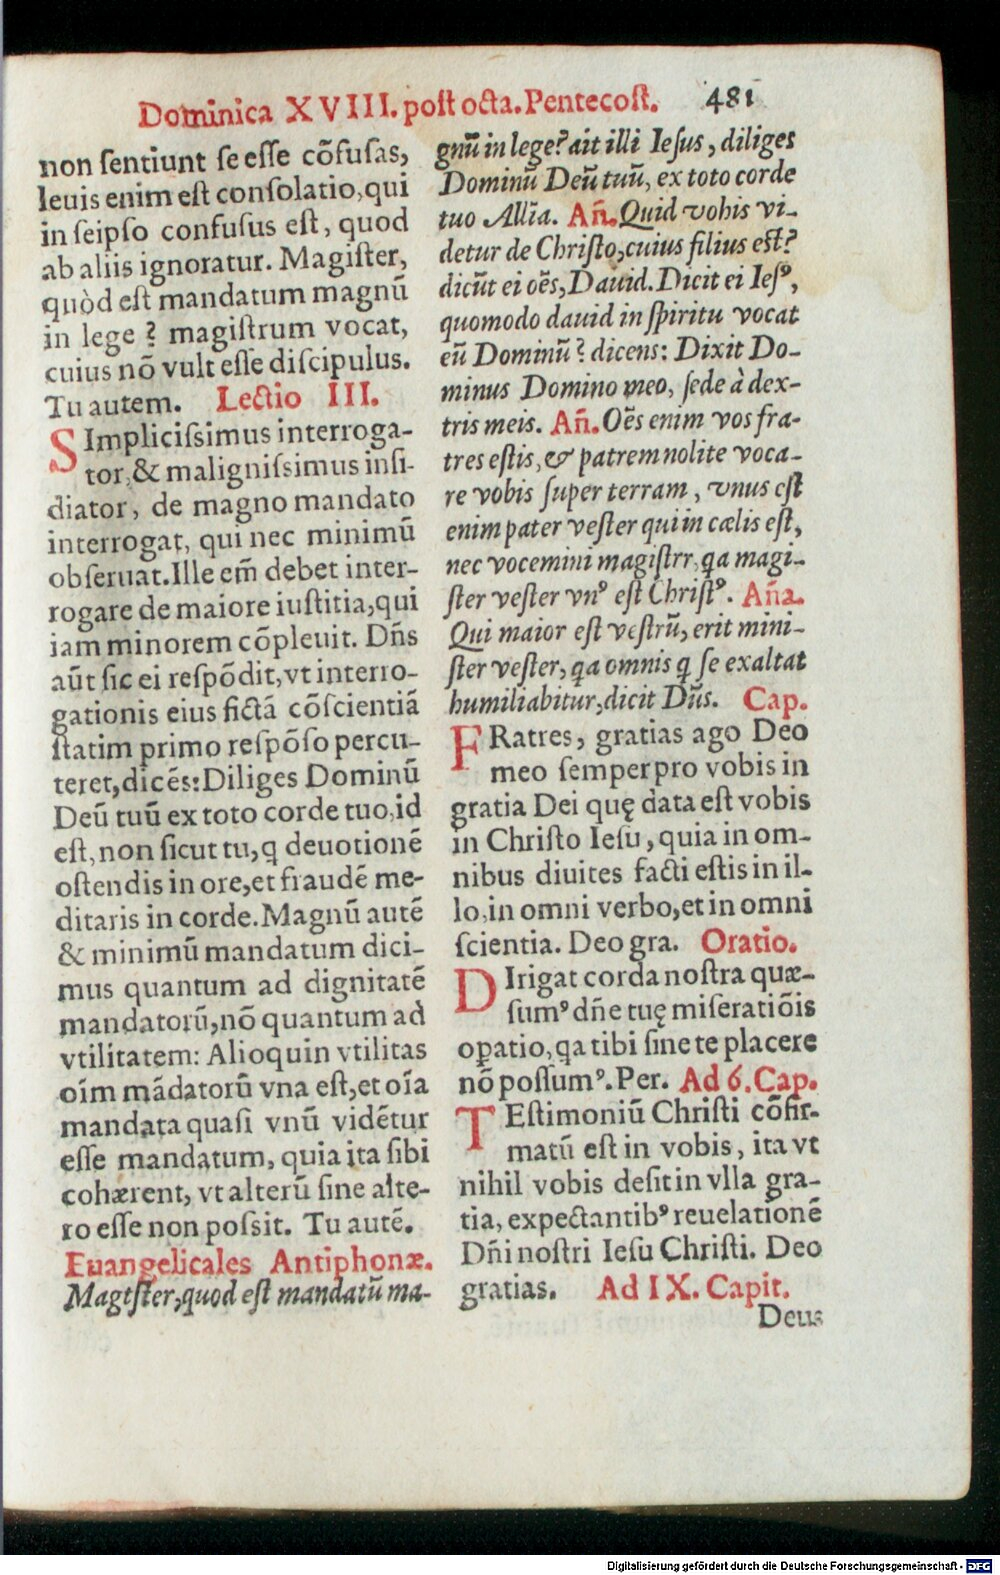 Dominica XVIII. post octa. Pentecost. 481
non sentiunt se esse cõfusas,
leuis enim est consolatio, qui
in seipso confusus est, quod
ab aliis ignoratur. Magister,
quòd est mandatum magnũ
in lege ? magistrum vocat,
cuius nõ vult esse discipulus.
Tu autem. Lectio III.
SImplicissimus interroga-
tor, & malignissimus insi-
diator, de magno mandato
interrogat, qui nec minimũ
obseruat. Ille em̃ debet inter-
rogare de maiore iustitia, qui
iam minorem cõpleuit. Dñs
aũt sic ei respõdit, vt interro-
gationis eius fictã cõscientiã
statim primo respõso percu-
teret, dicẽs: Diliges Dominũ
Deũ tuũ ex toto corde tuo, id
est, non sicut tu, q deuotionẽ
ostendis in ore, et fraudẽ me-
ditaris in corde. Magnũ autẽ
& minimũ mandatum dici-
mus quantum ad dignitatẽ
mandatorũ, nõ quantum ad
vtilitatem: Alioquin vtilitas
oĩm mãdatorũ vna est, et oĩa
mandata quasi vnũ vidẽtur
esse mandatum, quia ita sibi
cohærent, vt alterũ sine alte-
ro esse non possit. Tu autẽ.
Euangelicales Antiphonæ.
Magtster, quod est mandatũ ma-
gnũ in lege? ait illi Iesus, diliges
Dominũ Deũ tuũ, ex toto corde
tuo Allĩa. Añ. Quid vobis vi-
detur de Christo, cuius filius est?
dicũt ei oẽs, Dauid. Dicit ei Iesꝰ,
quomodo dauid in spiritu vocat
eũ Dominũ? dicens: Dixit Do-
minus Domino meo, sede à dex-
tris meis. Añ. Oẽs enim vos fra-
tres estis, & patrem nolite voca-
re vobis super terram, vnus est
enim pater vester qui in cælis est,
nec vocemini magistrr, qa magi-
ster vester vnꝰ est Christꝰ. Aña.
Qui maior est vestrũ, erit mini-
ster vester, qa omnis q se exaltat
humiliabitur, dicit Dũs. Cap.
FRatres, gratias ago Deo
meo semper pro vobis in
gratia Dei quę data est vobis
in Christo Iesu, quia in om-
nibus diuites facti estis in il-
lo, in omni verbo, et in omni
scientia. Deo gra. Oratio.
DIrigat corda nostra quæ-
sumꝰ dñe tuę miseratiõis
oꝑatio, qa tibi sine te placere
nõ possumꝰ. Per. Ad 6. Cap.
TEstimoniũ Christi cõfir-
matũ est in vobis, ita vt
nihil vobis desit in vlla gra-
tia, expectantibꝰ reuelationẽ
Dñi nostri Iesu Christi. Deo
gratias. Ad IX. Capit.
Deus
Digitalisierung gefördert durch die Deutsche Forschungsgemeinschaft - DFG